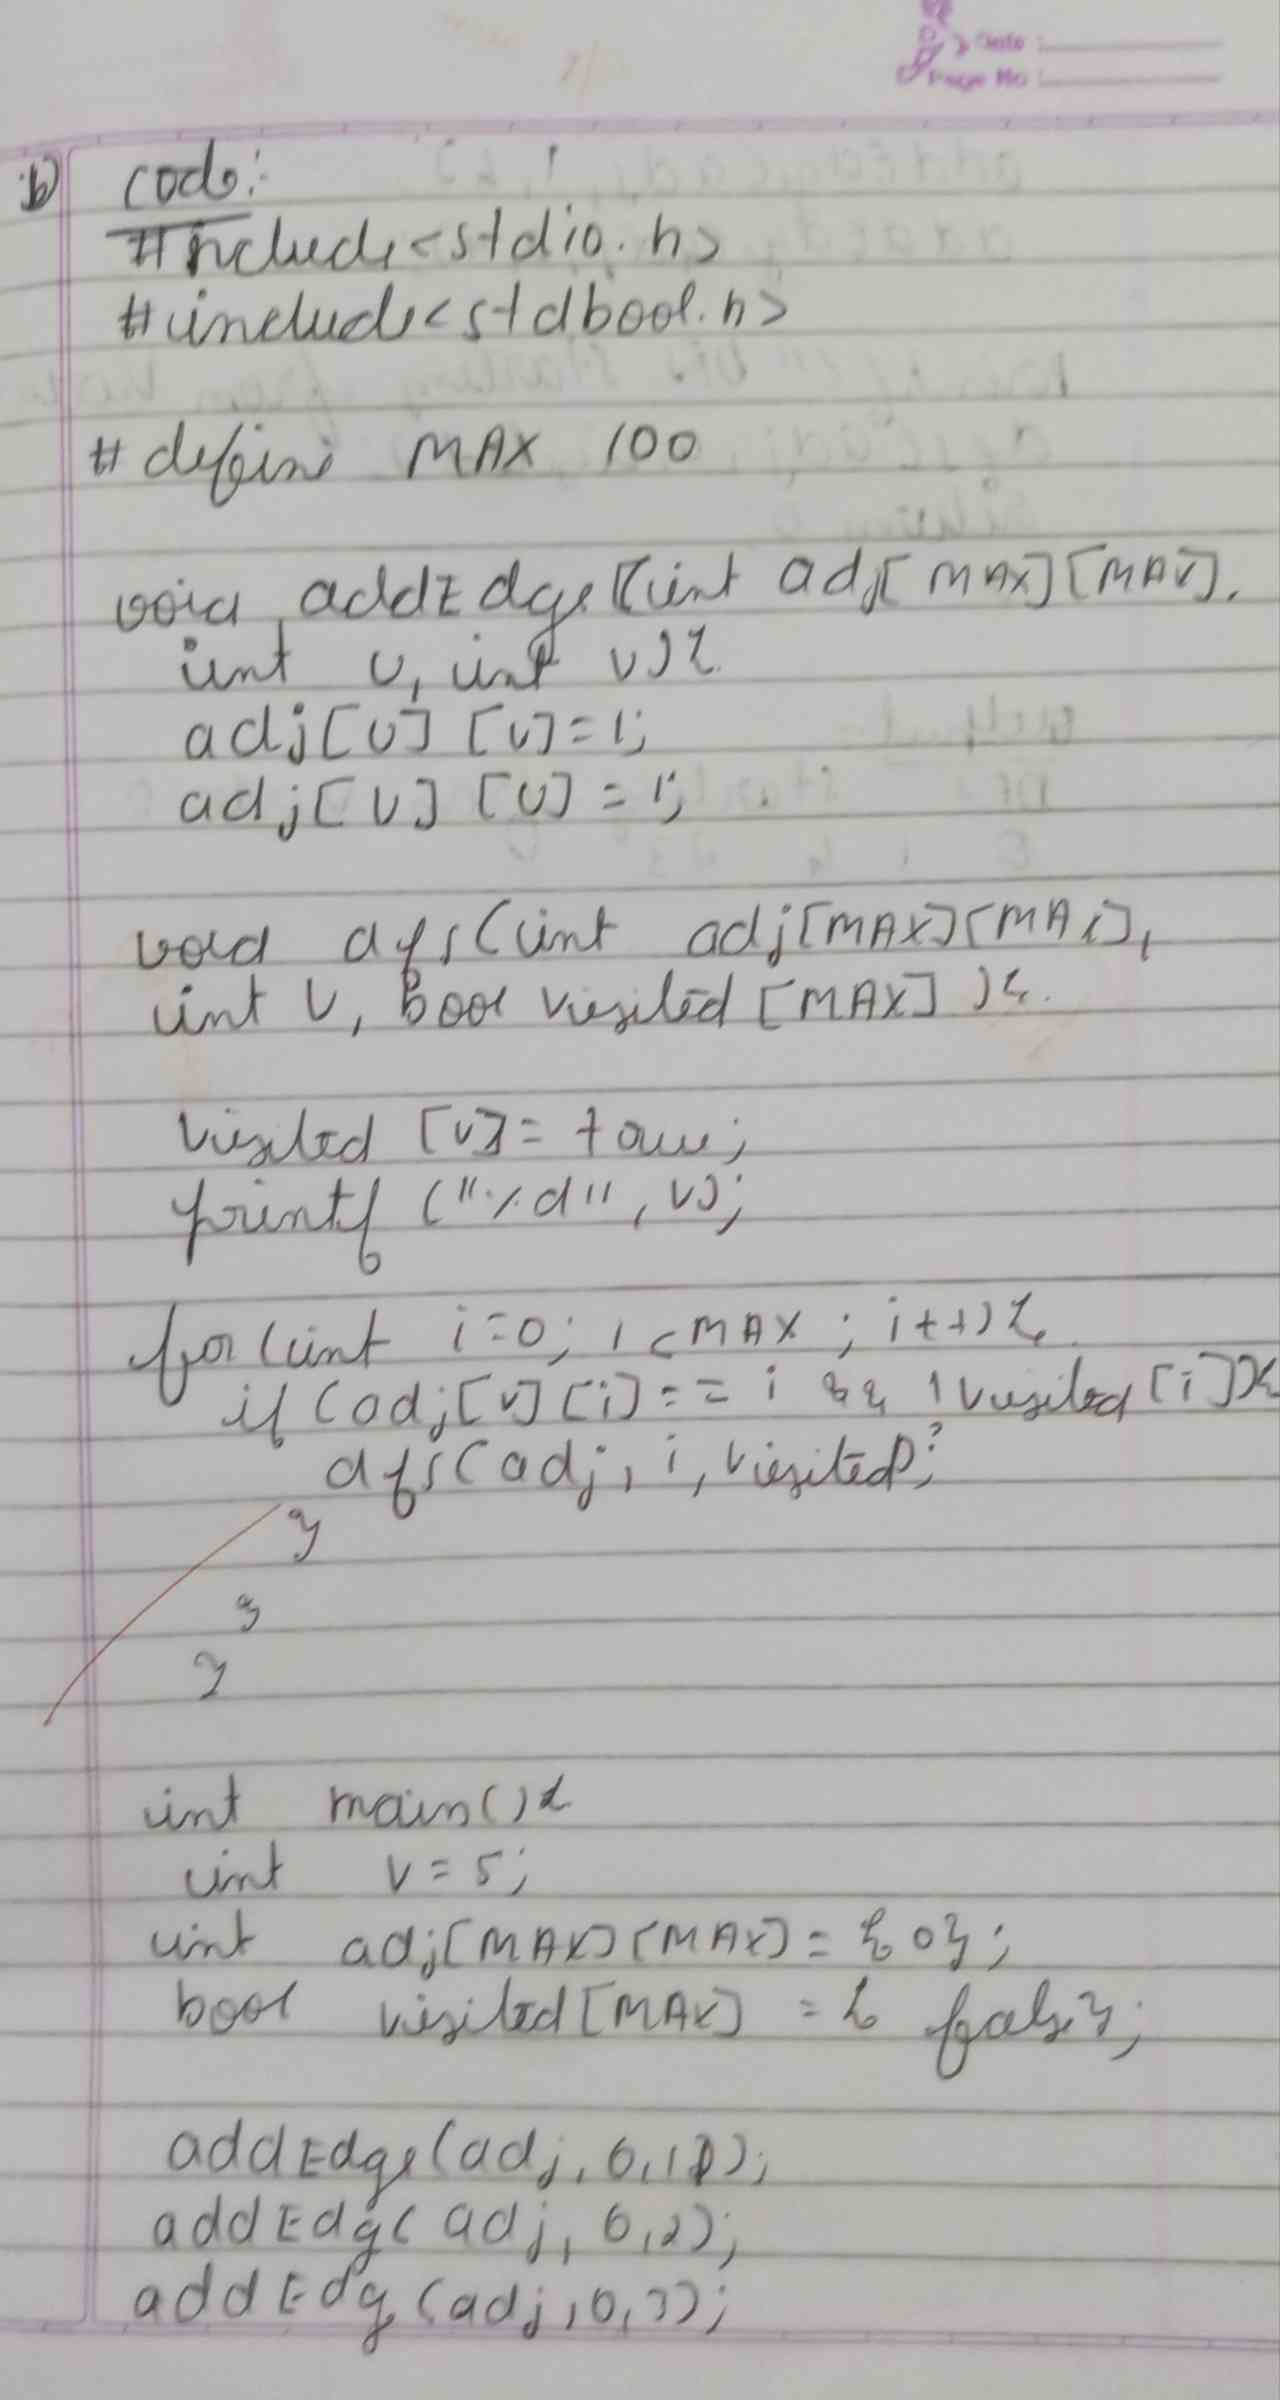 Date :
Page No :
b) code:
#include<stdio.h>
#include<stdbool.h>
#define MAX 100
void addEdge(int adj[MAX][MAX],
int u, int v){
adj[u][v]=1;
adj[v][u]=1;
void dfs(int adj[MAX][MAX],
int v, bool visited[MAX]){
visited[v]= true;
printf("%d", v);
for(int i=0; i<MAX; i++){
if(adj[v][i]== 1 && !visited[i]){
dfs(adj, i, visited);
}
}
}
int main(){
int v=5;
int adj[MAX][MAX]={0};
bool visited[MAX] ={false};
addEdge(adj, 0,1);
addEdg(adj, 0,2);
addEdg(adj,0,3);